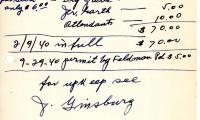 only $6.00
5.00
10.00
Attendants $70.00
2/9/40 in full $70.00
9-29-40 permit by Feldman Pd $5.00
for upkeep see
J. Ginsburg